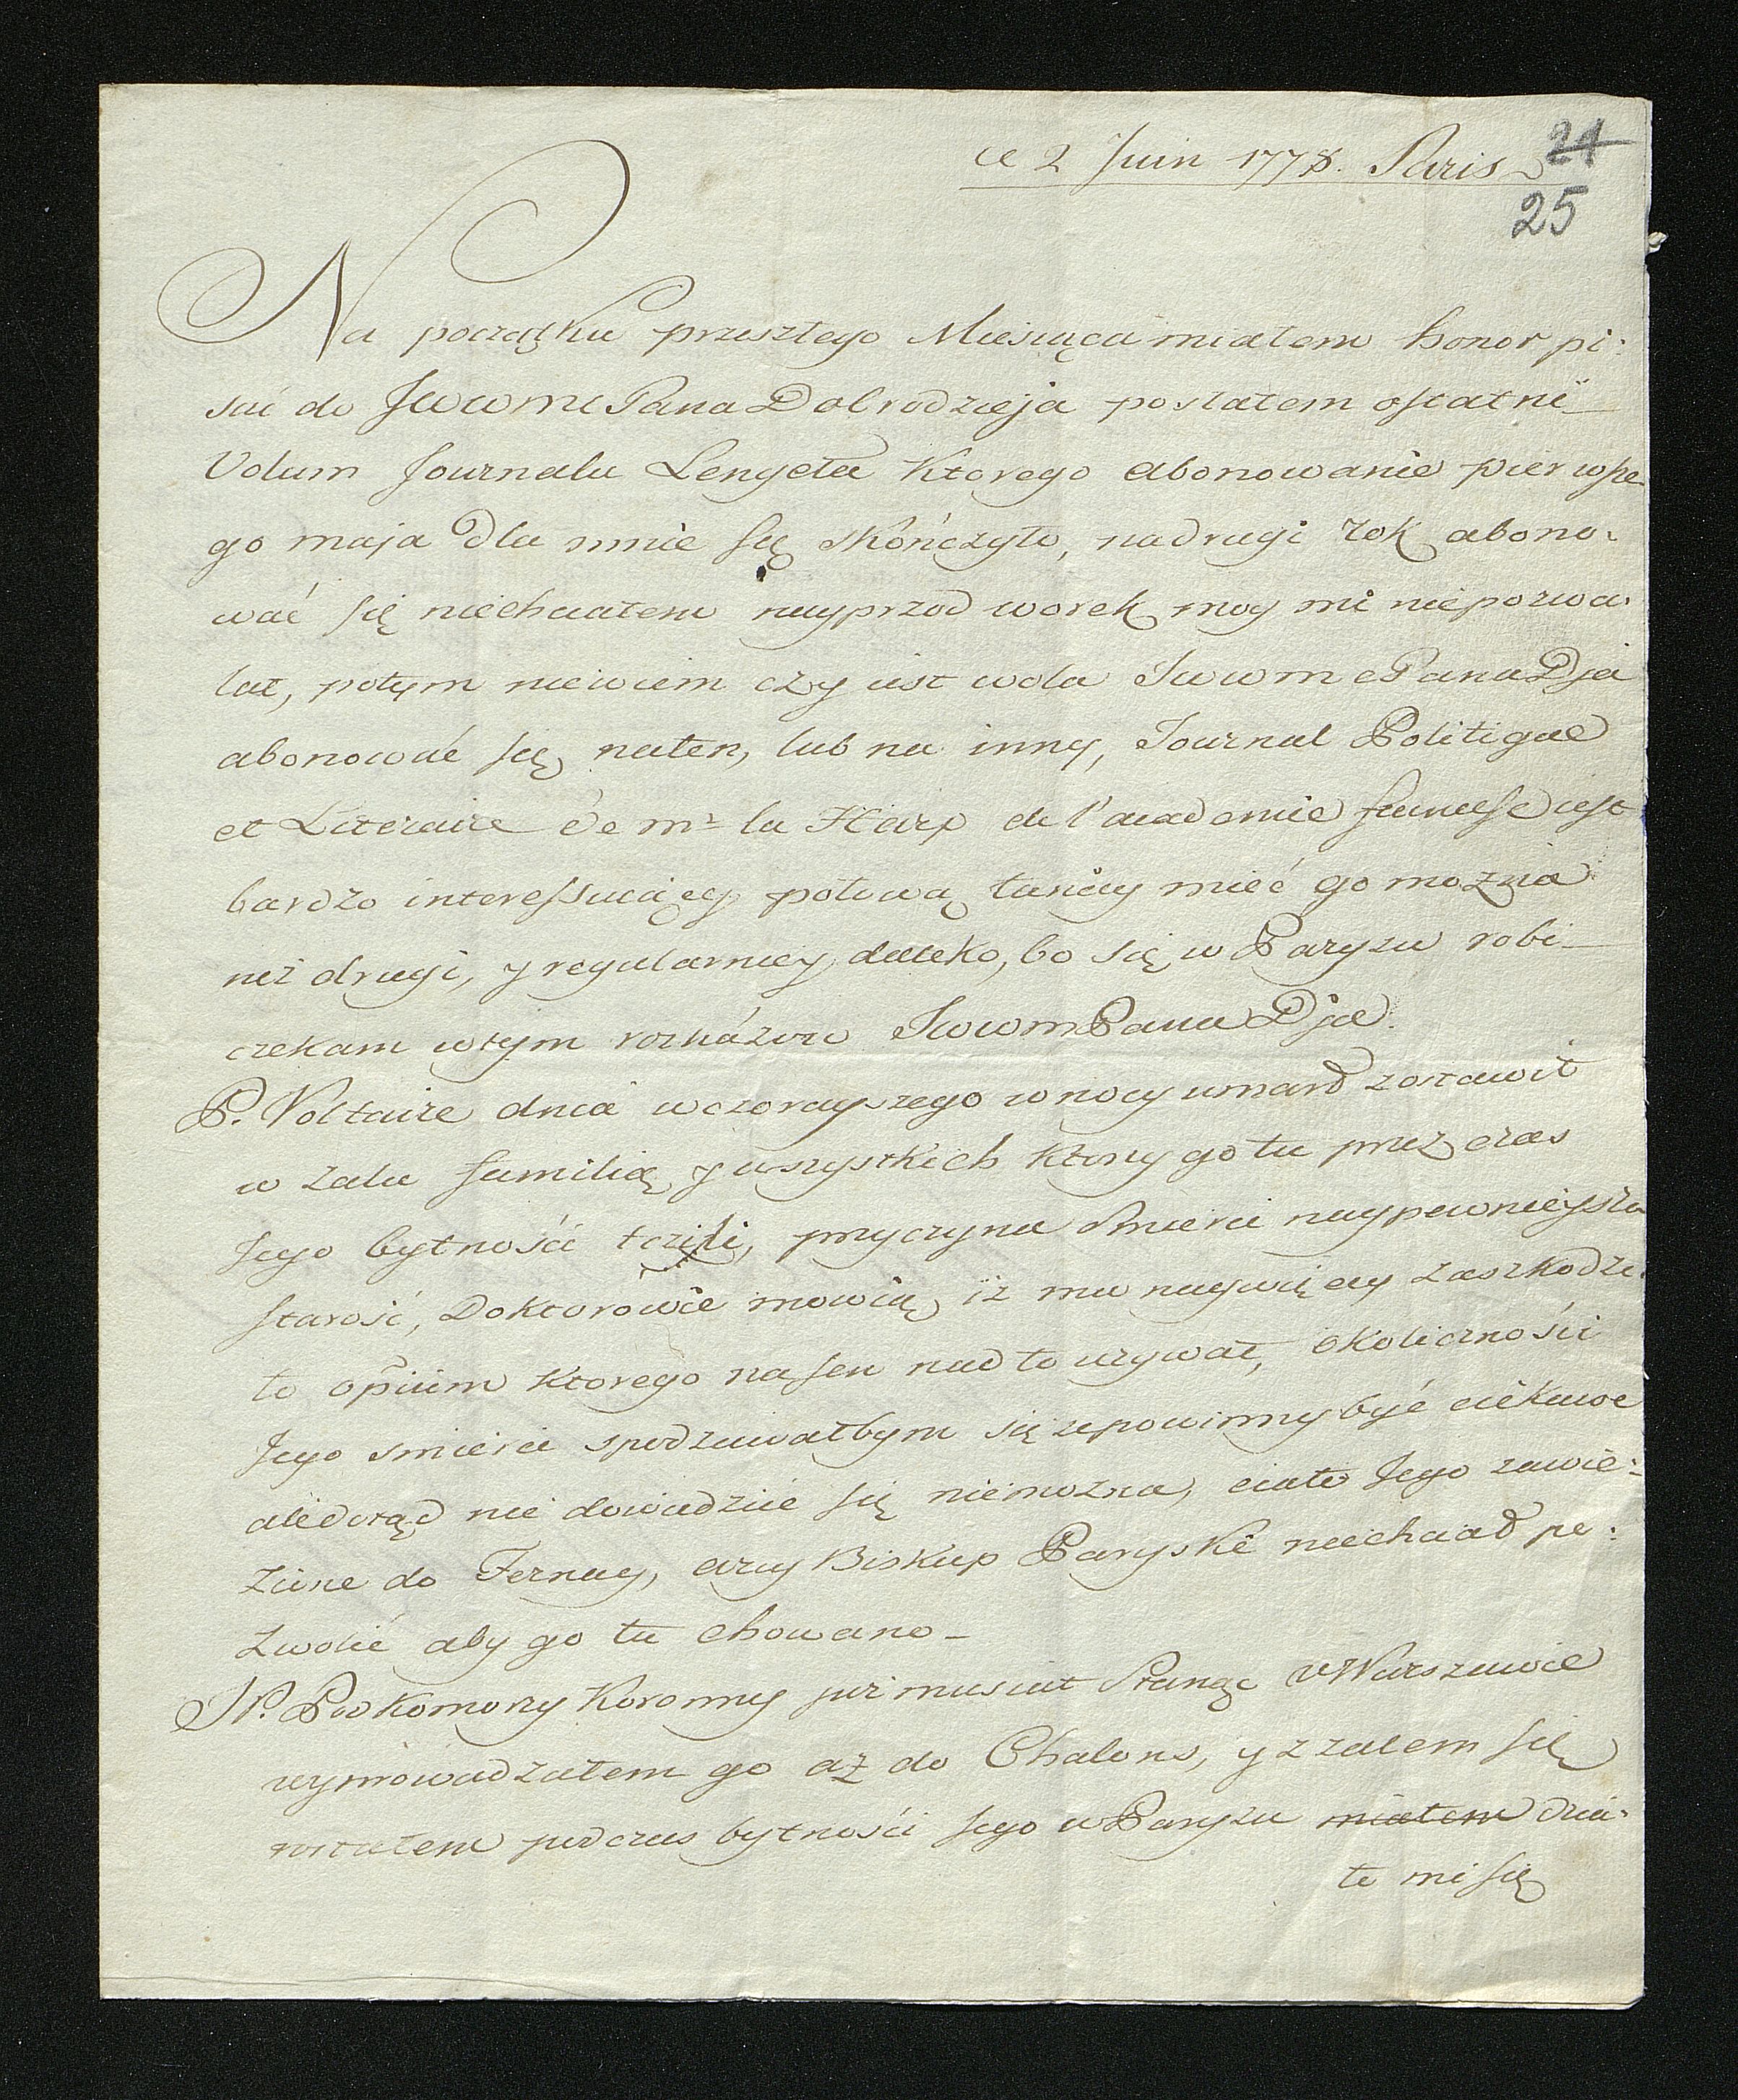 ce 2 Juin 1778. Paris
24
25
Na początku przeszłego Miesiąca miałem honor pi:
sać do JWWMć Pana Dobrodzieja posłałem ostatni
Volum Journalu Lengeta ktorego abonowanie pierwsze
go maja dla mnie się skończyło, na drugi rok abono:
wać się niechciałem nayprzod worek moy mi niepozwa:
lał, potym niewiem czy iest wola JWWMć Pana Dja
abonować się na ten, lub na inny, Journal Politique
et Literaire de mr la Harp de l'academie francese iest
bardzo interessuiący połową taniey mieć go mozna
niż drugi, y regularniey daleko, bo się w Paryzu robi
czekam w tym rozkazow JWWM Pana Dja.
P. Voltaire dnia wczorayszego w nocy umarł zostawił
w zalu familią y wszystkich ktorzy go tu przez czas
Jego bytności tczili, przyczyna smierci naypewnieysza
starość, Doktorowie mowią iż mu naywięcey zaszkodzi:
ło opium ktorego na sen nadto uzywał, okoliczności
Jego smierci spodziewałbym się ze powinny być ciekawe
ale dotąd nie dowiedzić się niemozna, ciało Jego zawie:
zione do Fernay, arcy Biskup Paryski niechciał po:
zwolić aby go tu chowano_
JP. Podkomorzy Koronny już musiał stanąc w Warszawie
wyprowadzałem go aż do Chalons, y z zalem się
rostałem podczas bytności Jego w Paryzu miałem dzia:
ło mi się